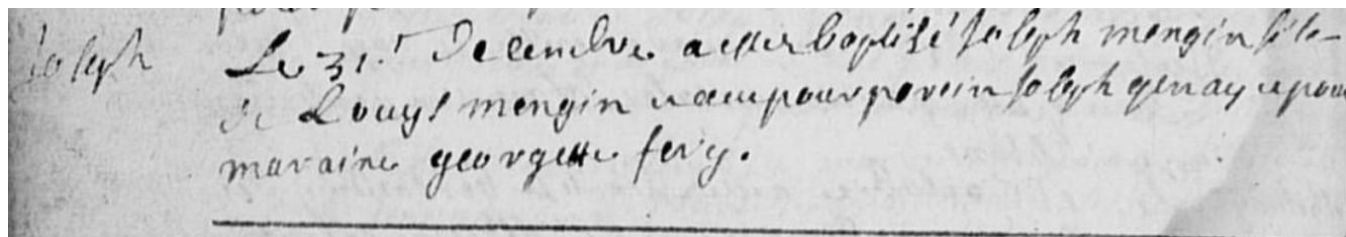 Joseph
Le 31.e Decembre a esté baptisé Joseph mengin fils
de Louys mengin et a eu pour parein Joseph genay et pour
maraine georgette fery.